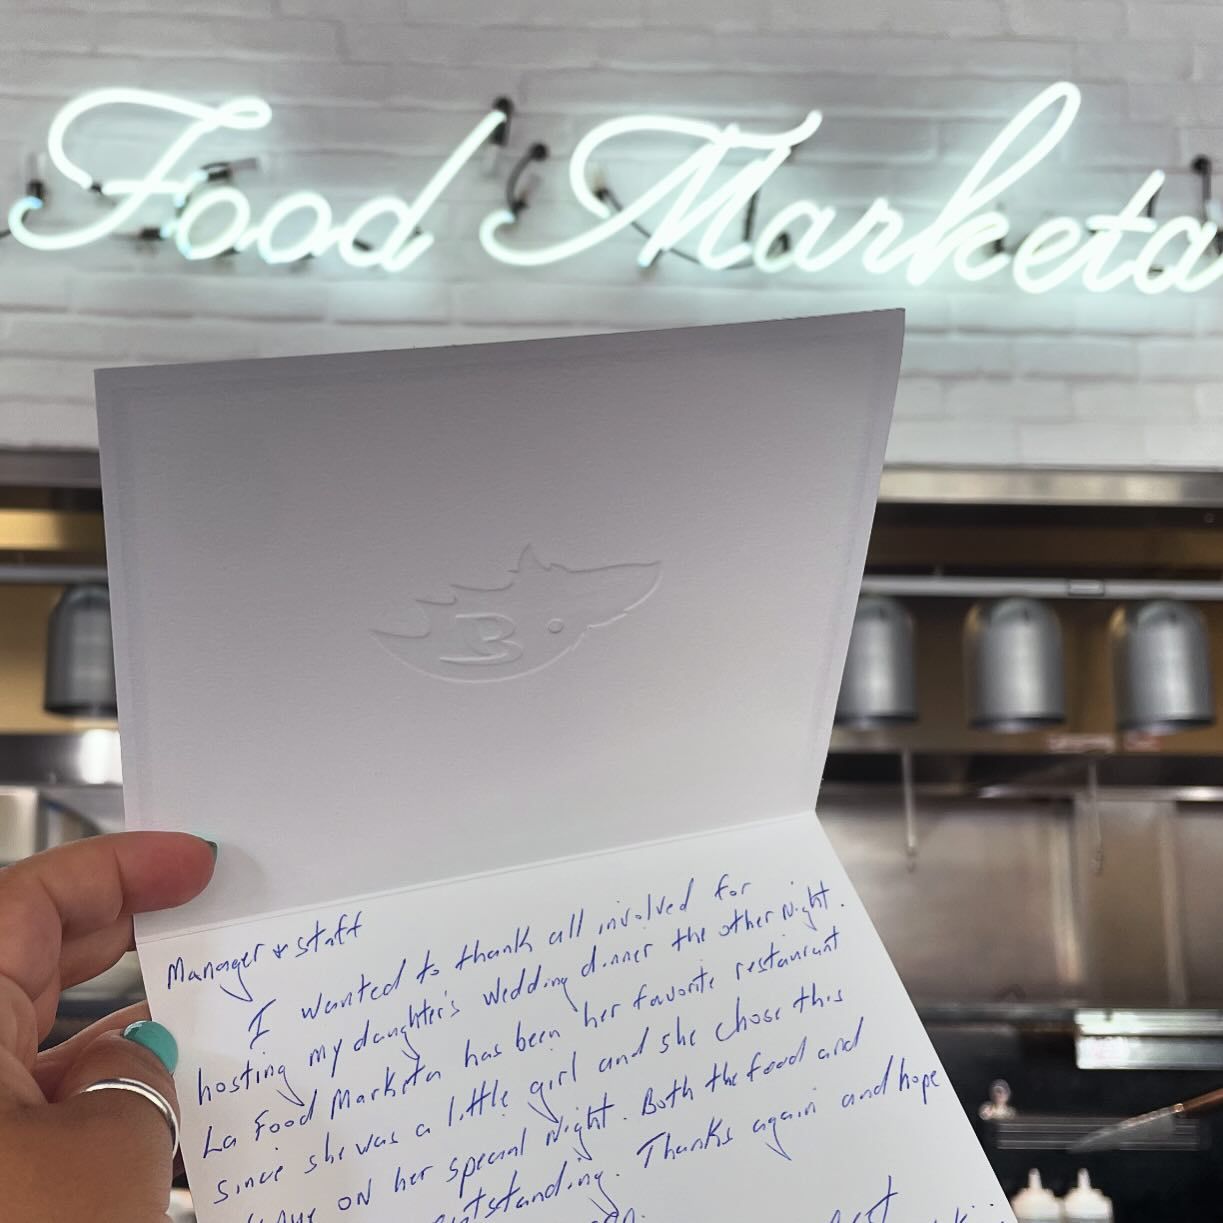 Food Marketa
B
Manager & staff
I wanted to thank all involved for
hosting my daughter's wedding dinner the other Night.
La Food Marketa has been her favorite restaurant
since she was a little girl and she chose this
on her special Night. Both the food and
Thanks again and hope